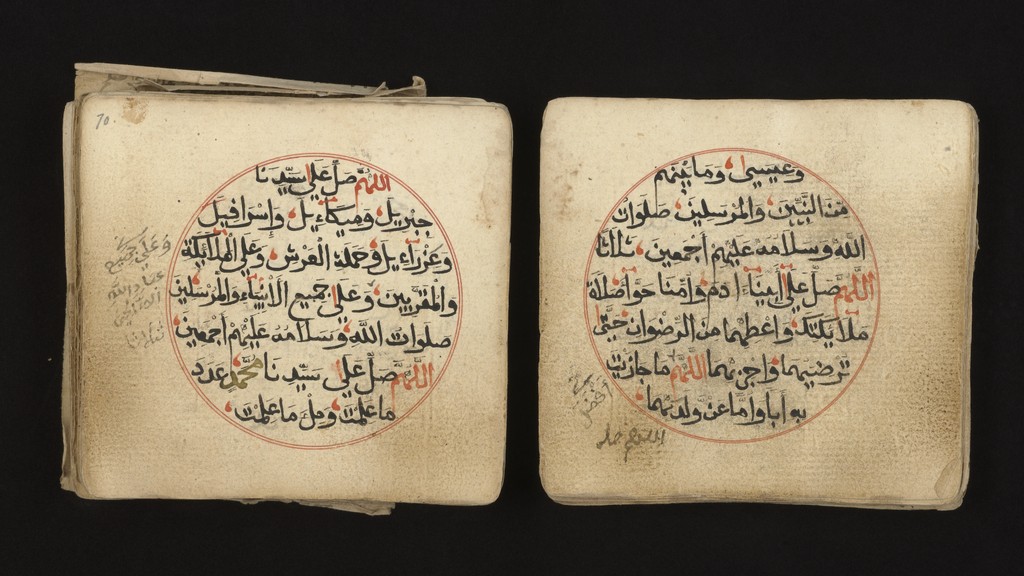 وعيسى وما بينهم
من النبيين والمرسلين صلوات
الله وسلامه عليهم أجمعين ثلاثا
اللهم صل على أبينا ءادم وأمنا حواء صلاة
ملائكتك وأعطهما من الرضوان حتى
ترضيهما وأجزهما اللهم ما جازيت
به أبا وأما عن ولديهما
أفضل
70
اللهم صل على سيدنا
جبريل وميكاءيل وإسرافيل
وعزراءيل وحملة العرش وعلى الملائكة
والمقربين وعلى جميع الأنبياء والمرسلين
صلوات الله وسلامه عليهم أجمعين
اللهم صل على سيدنا محمد عدد
ما علمت وملء ما علمت
وعلى جميع
عباد الله
الصالحين
ثلاثا